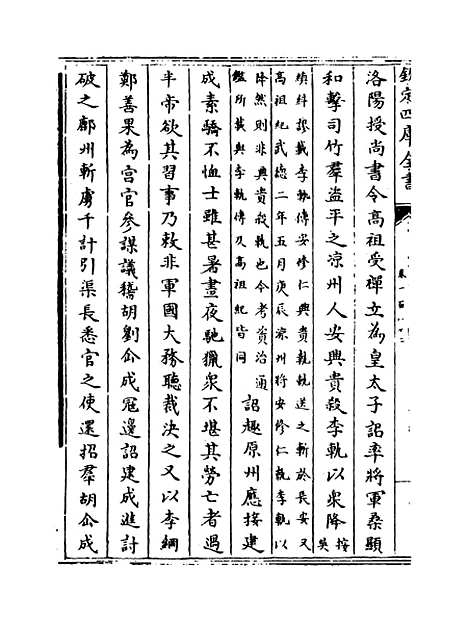 欽定四庫全書
洛陽授尚書令高祖受禪立為皇太子詔率將軍桑顯
和擊司竹羣盜平之涼州人安興貴殺李軌以衆降
按
吳
縝糾謬載李軌傳安修仁興貴執軌送之斬於長安又
高祖紀武德二年五月庚辰涼州將安修仁執李軌以
降然則非興貴殺軌也今考資治通
鑑所載與李軌傳及高祖紀皆同
詔趣原州應接建
成素驕不恤士雖甚暑晝夜馳獵衆不堪其勞亡者過
半帝欲其習事乃敕非軍國大務聽裁決之又以李綱
鄭善果為宮官參謀議稽胡劉仚成寇邊詔建成進討
破之鄜州斬虜千計引渠長悉官之使還招羣胡仚成